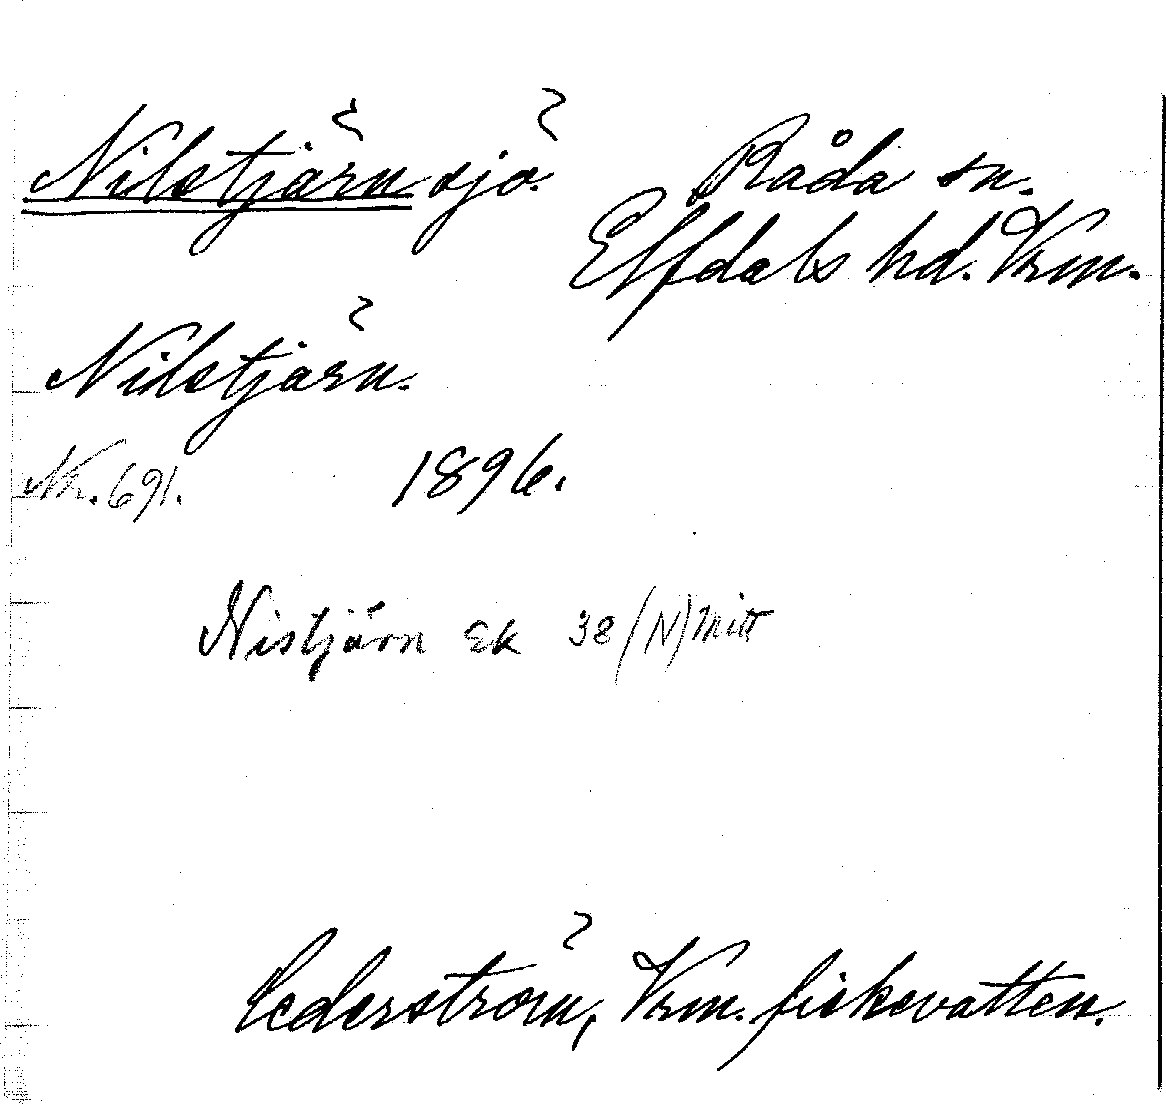 Nilstjärn sjö. Råda sn.
Elfdals hd. Vrm.
Nilstjärn.
Nr. 691. 1896.
Nistjärn Ek 38 (N) mitt
Cederström, Vrm. fiskevatten.